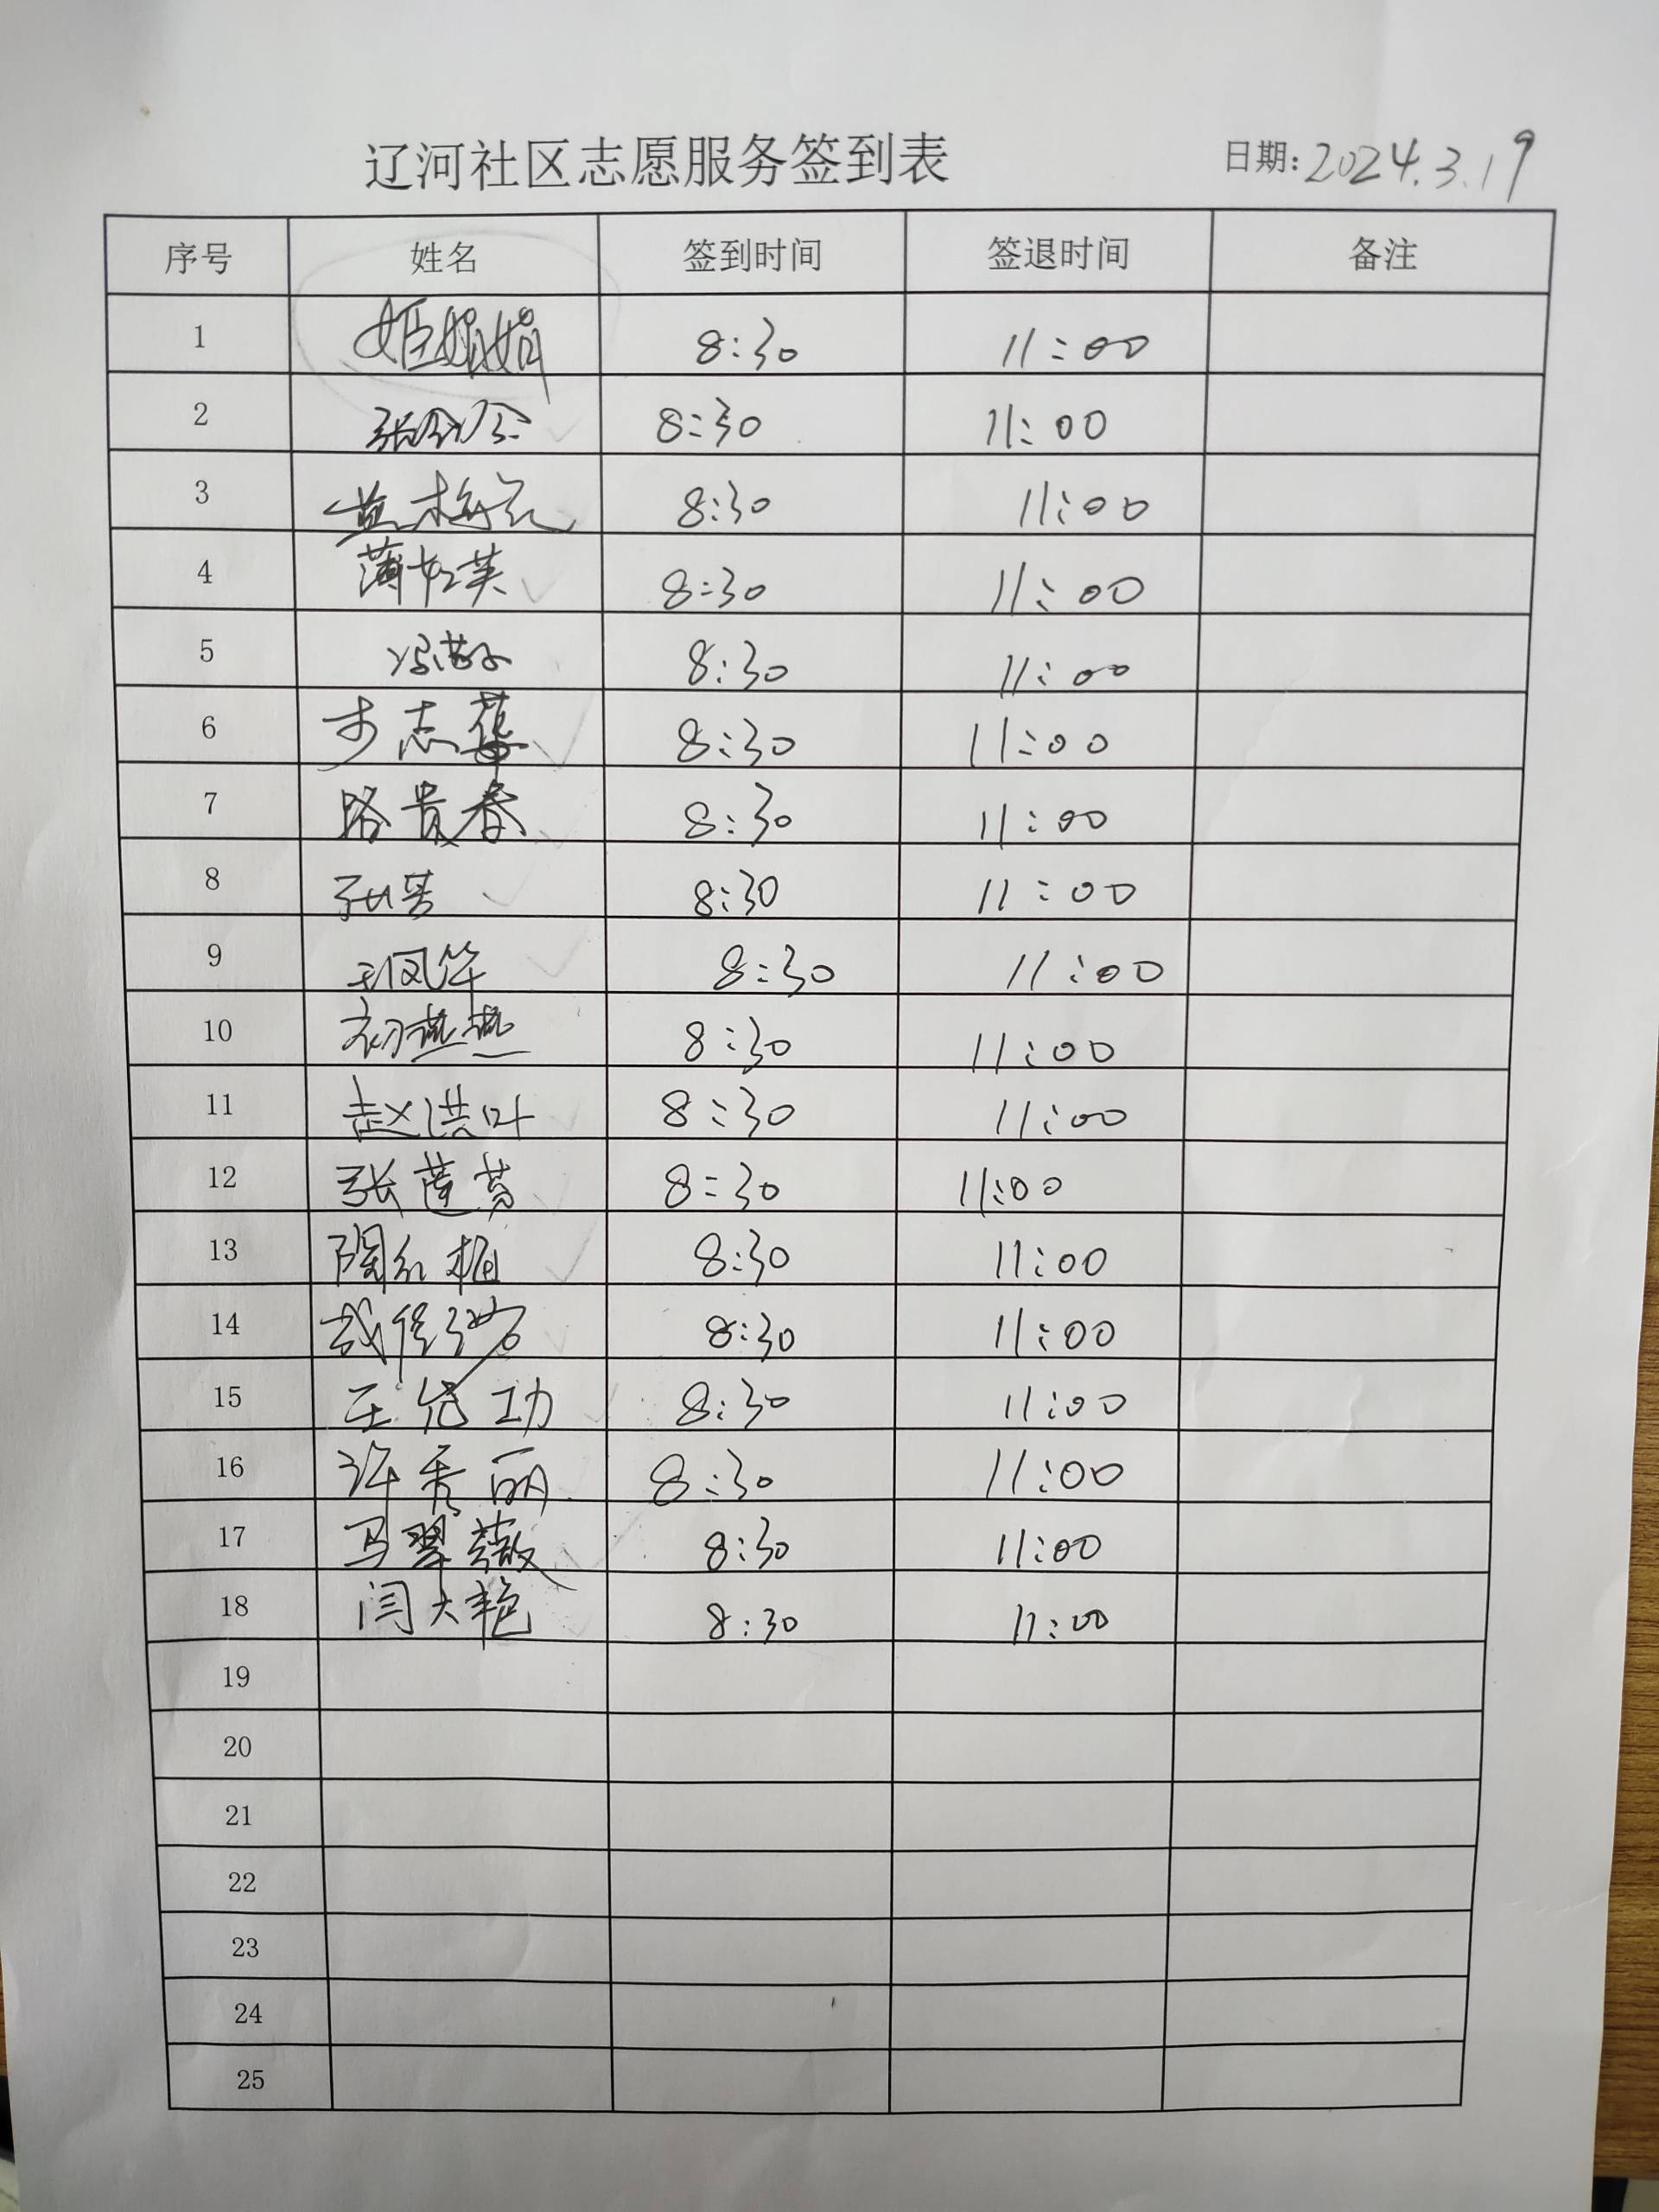 辽河社区志愿服务签到表 日期:2024.3.19
序号 姓名 签到时间 签退时间 备注
1 8:30 11:00
2 8:30 11:00
3 8:30 11:00
4 薄红英 8:30 11:00
5 8:30 11:00
6 步志 8:30 11:00
7 路贵春 8:30 11:00
8 张芳 8:30 11:00
9 王凤华 8:30 11:00
10 初燕燕 8:30 11:00
11 赵洪叶 8:30 11:00
12 张莲芳 8:30 11:00
13 陶红梅 8:30 11:00
14 8:30 11:00
15 王 功 8:30 11:00
16 许秀丽 8:30 11:00
17 马翠薇 8:30 11:00
18 闫大艳 8:30 11:00
19
20
21
22
23
24
25